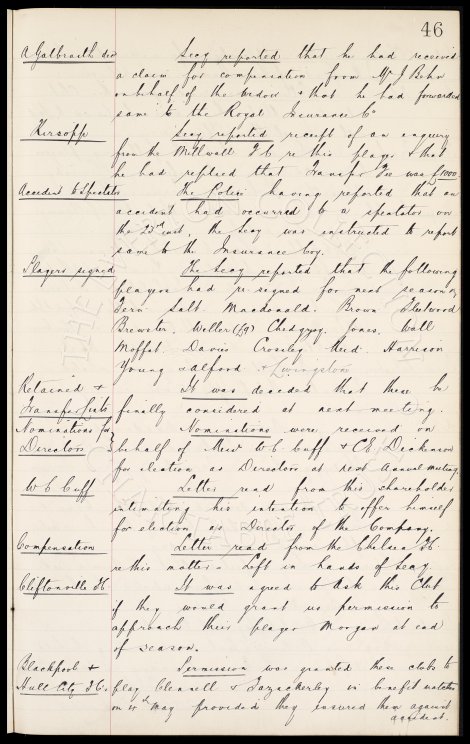 46
A Galbraith decd Secy reported that he had received
a claim for compensation from Mr J Bohr
on behalf of the widow & that he had forwarded
same to the Royal Insurance Co
Kirsopp Secy reported receipt of an enquiry
from the Millwall F C re this player & that
he had replied that Transfer Fee was £1000
Accident to Spectator The Police having reported that an
accident had occurred to a spectator on
the 23rd inst, the Secy was instructed to report
same to the Insurance Coy.
Players signed The Secy reported that the following
players had re-signed for next season
Fern Salt. Macdonald. Brown Fleetwood
Brewster. Weller (£9) Chedgzoy. Jones. Wall
Moffat. Davies Crossley Reid. Harrison
Young & Alford & Livingstone
Retained & It was decided that these be
Transfer Lists finally considered at next meeting.
Nominations for Nominations were received on
Directors behalf of Messrs W C Cuff & C E Dickinson
for election as Directors at next annual meeting
W C Cuff Letter read from this shareholder
intimating his intention to offer himself
for election as Director of the Company.
Compensation Letter read from the Chelsea F C.
re this matter - Left in hands of Secy
Cliftonville F C It was agreed to ask this Club
if they would grant us permission to
approach their player Morgan at end
of season.
Blackpool & Permission was granted these clubs to
Hull City F C. play Clennell & Fazackerley in benefit matches
on May provided they insured them against
accident.